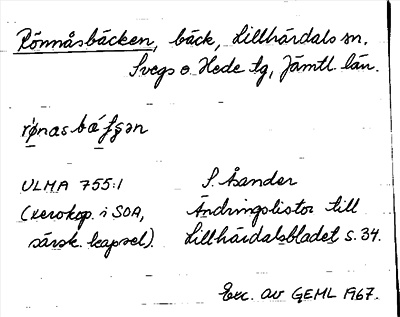 Rönnåsbäcken, bäck, Lillhärdals sn.
Svegs o. Hede tg, Jämtl. län.
ULMA 755:1
(xerokop. i SOA,
särsk. kapsel).
S. Åsander
Ändringslistor till
Lillhärdalsbladet s. 34.
Exc. av GEML 1967.